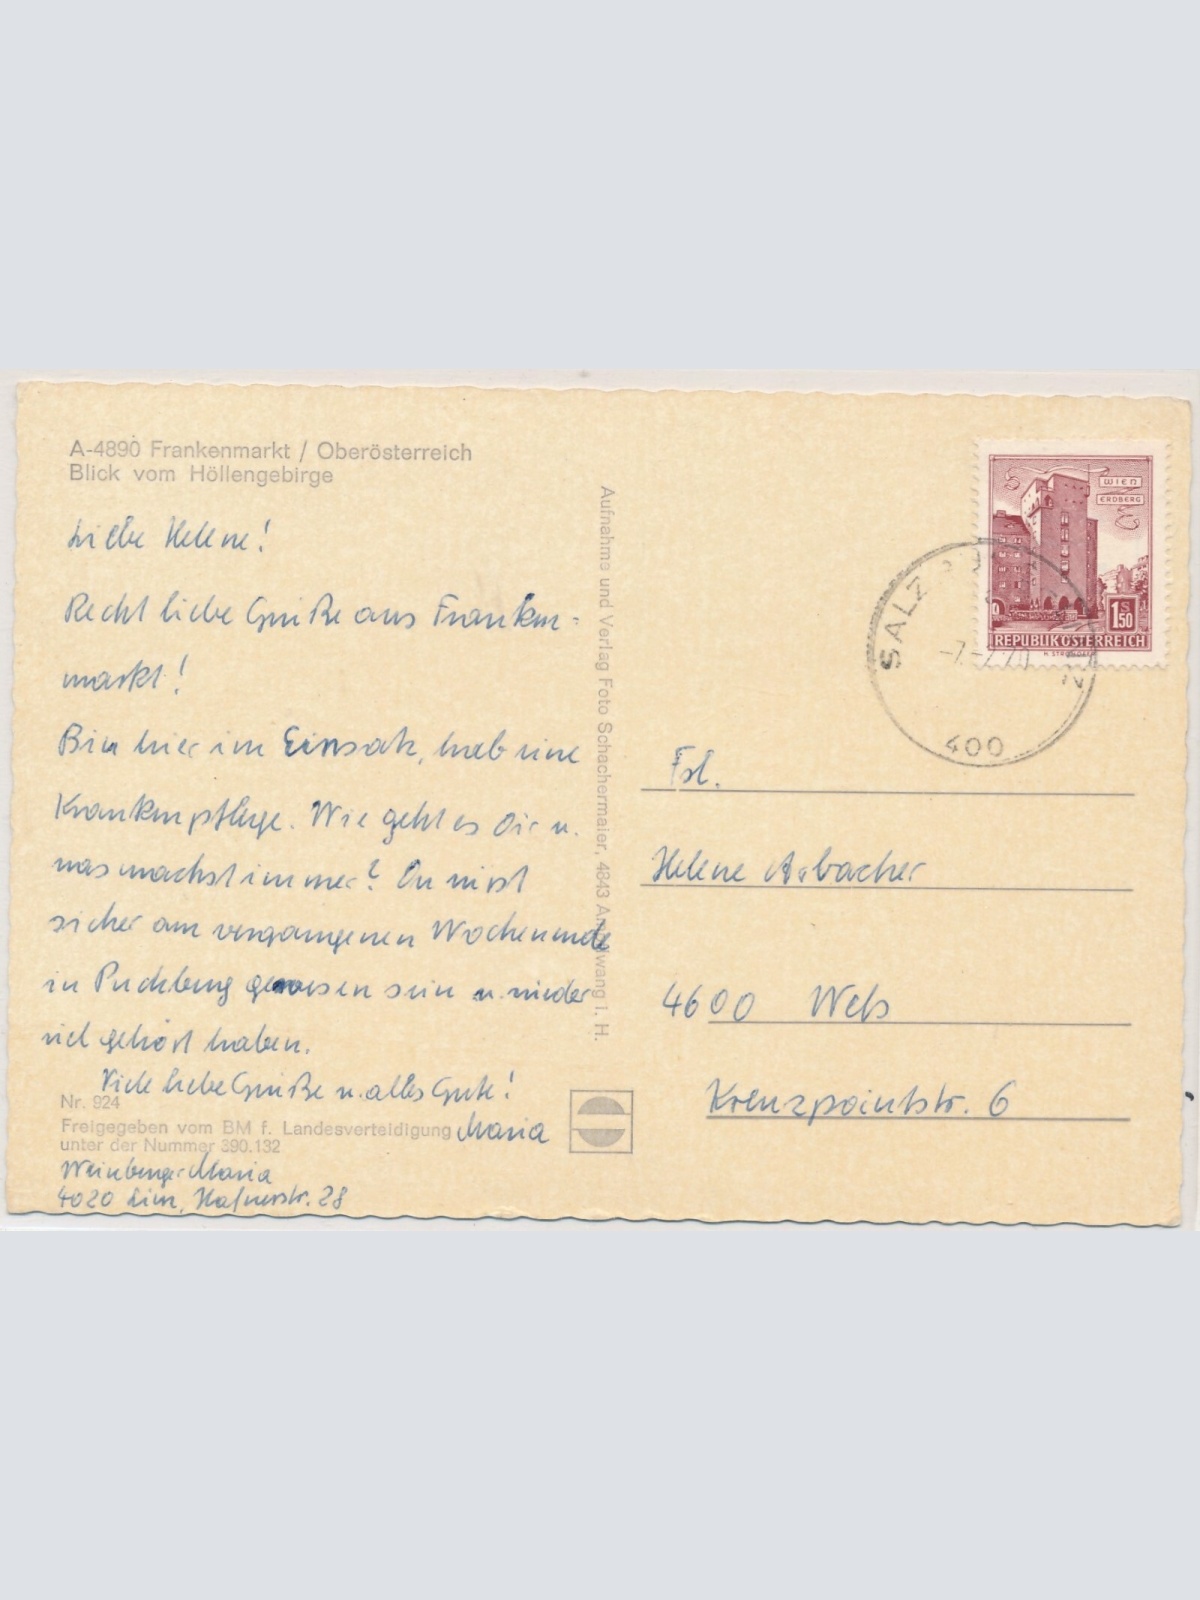 A-4890 Frankenmarkt / Oberösterreich
Blick vom Höllengebirge
Liebe Helene!
Recht liebe Grüße aus Franken-
markt!
Bin hier im Einsatz, hab eine
Krankenpflege. Wie geht es Dir u.
was machst immer? Du wirst
sicher am vergangenen Wochenende
in Puchberg gewesen sein u. wieder
viel gehört haben.
Viele liebe Grüße u. alles Gute!
Maria
Nr. 924
Freigegeben vom BM f. Landesverteidigung
unter der Nummer 390.132
Weinberger Maria
4020 Linz, Hafnerstr. 28
Aufnahme und Verlag Foto Schachermaier, 4843 Ampflwang i. H.
WIEN
ERDBERG
1 S 50
REPUBLIK ÖSTERREICH
SALZ
-7.-7.70
400
Frl.
Helene
4600 Wels
Kreuzpointstr. 6